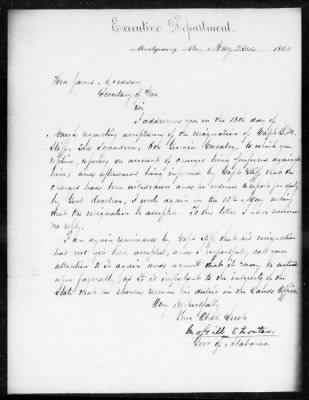 Executive Department.
Montgomery, Ala., May 186
Hon James A Seddon
Secretary of War
Sir
I addressed you on the 18th day of
March requesting acceptance of the resignation of Capt
Cavalry, to which you
replied, refusing on account of charges being preferred against
him; and afterwards being informed by Capt that the
charges had been withdrawn and he ordered to report for duty
by Genl I wrote again on the May asking
that the resignation be accepted. To this letter I have received
no reply.
I am again reminded by Capt that his resignation
has not yet been accepted, and I respectfully call your
attention to it again and request that it may be acted
upon favorably, as it is important to the interests of the
State that he should resume his duties in the Land Office
Very Respectfully
Your Obdt Servt
Jno Gill Shorter
Gov of Alabama